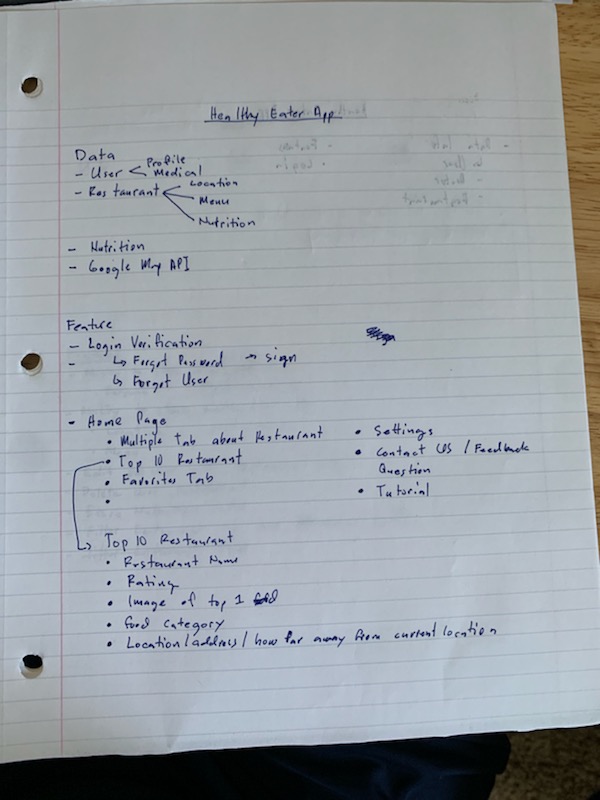 Healthy Eater App
Data
- User Profile
Medical
- Restaurant Location
Menu
Nutrition
- Nutrition
- Google Map API
Feature
- Login Verification
- ↳ Forgot Password → sign
↳ Forgot User
- Home Page
• Multiple Tab about Restaurant
• Top 10 Restaurant
• Favorites Tab
•
• Settings
• Contact US / Feedback
Question
• Tutorial
Top 10 Restaurant
• Restaurant Name
• Rating
• Image of top 1
• Food Category
• Location/address/how far away from current location